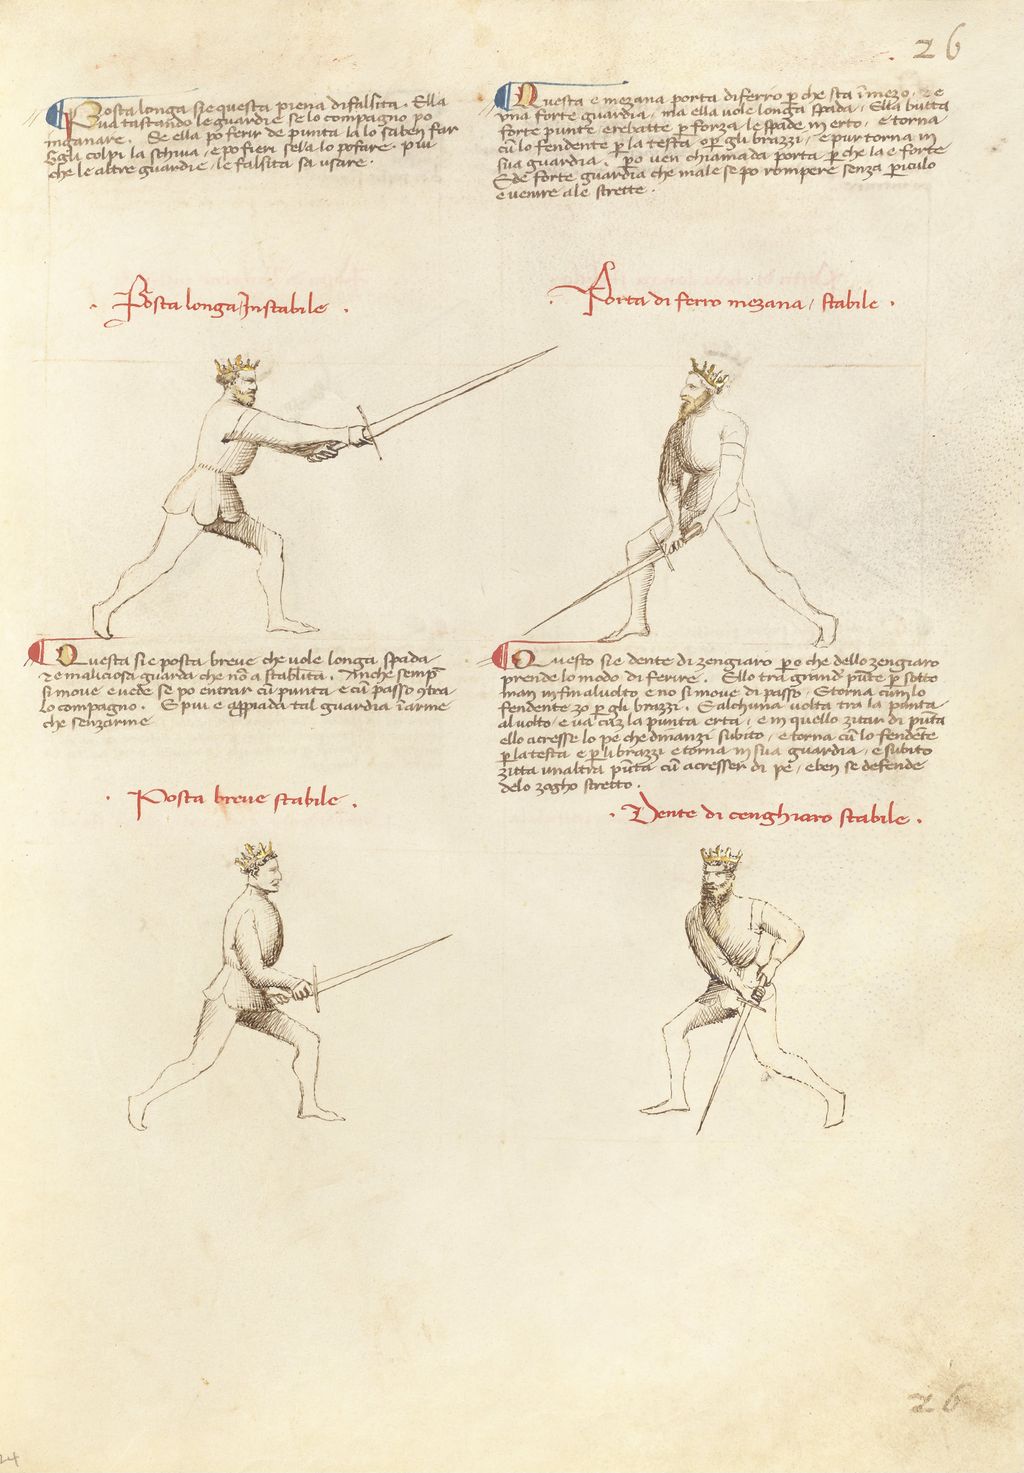 26
Posta longa sie questa piena di falsita. Ella
va tastando le guardie se lo compagno po
inganare. Se ella po ferir de punta la lo sa ben far
Egli colpi la schiva, e po fieri s'ela lo po fare. piu
che le altre guardie, le falsita sa usare.
Questa e mezana porta di ferro p che sta ī mezo, ⁊ e
una forte guardia, ma ella vole longa spada, Ella butta
forte punte e rebatte p forza le spade in erto, e torna
cū lo fendente p la testa o p gli brazzi, e pur torna in
sua guardia. po uen chiamada porta p che la e forte
E de forte guardia che male se po rompere senza piculo
e uenire ale strette.
Posta longa / Instabile.
Porta di ferro mezana, stabile.
Questa sie posta breve che vole longa spada
⁊ e maliciosa guarda che nō a stabilita. Anche semp
si move e vede se po entrar cū punta e cū passo ɔtra
lo compagno. E piu e appiada tal guardia ī arme
che senz'arme
Posta breve stabile.
Questo sie dente di zengiaro po che dello zengiaro
prende lo modo di ferire. Ello tra grand pūte p sotto
man in fin al volto e no si move di passo, E torna cum lo
fendente zo p gli brazzi. E alchuna volta tra la punta
al volto, e va cū la punta erta, e in quello zitar di pūta
ello acresse lo pe che dinanzi subito, e torna cū lo fendēte
p la testa e p li brazzi e torna in sua guardia, e subito
zitta un altra pūta cū acresser di pe, e ben se defende
delo zogho stretto.
Dente di cenghiaro stabile.
26
24